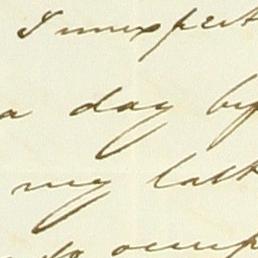 I unexpect
a day by
my latt
to occup